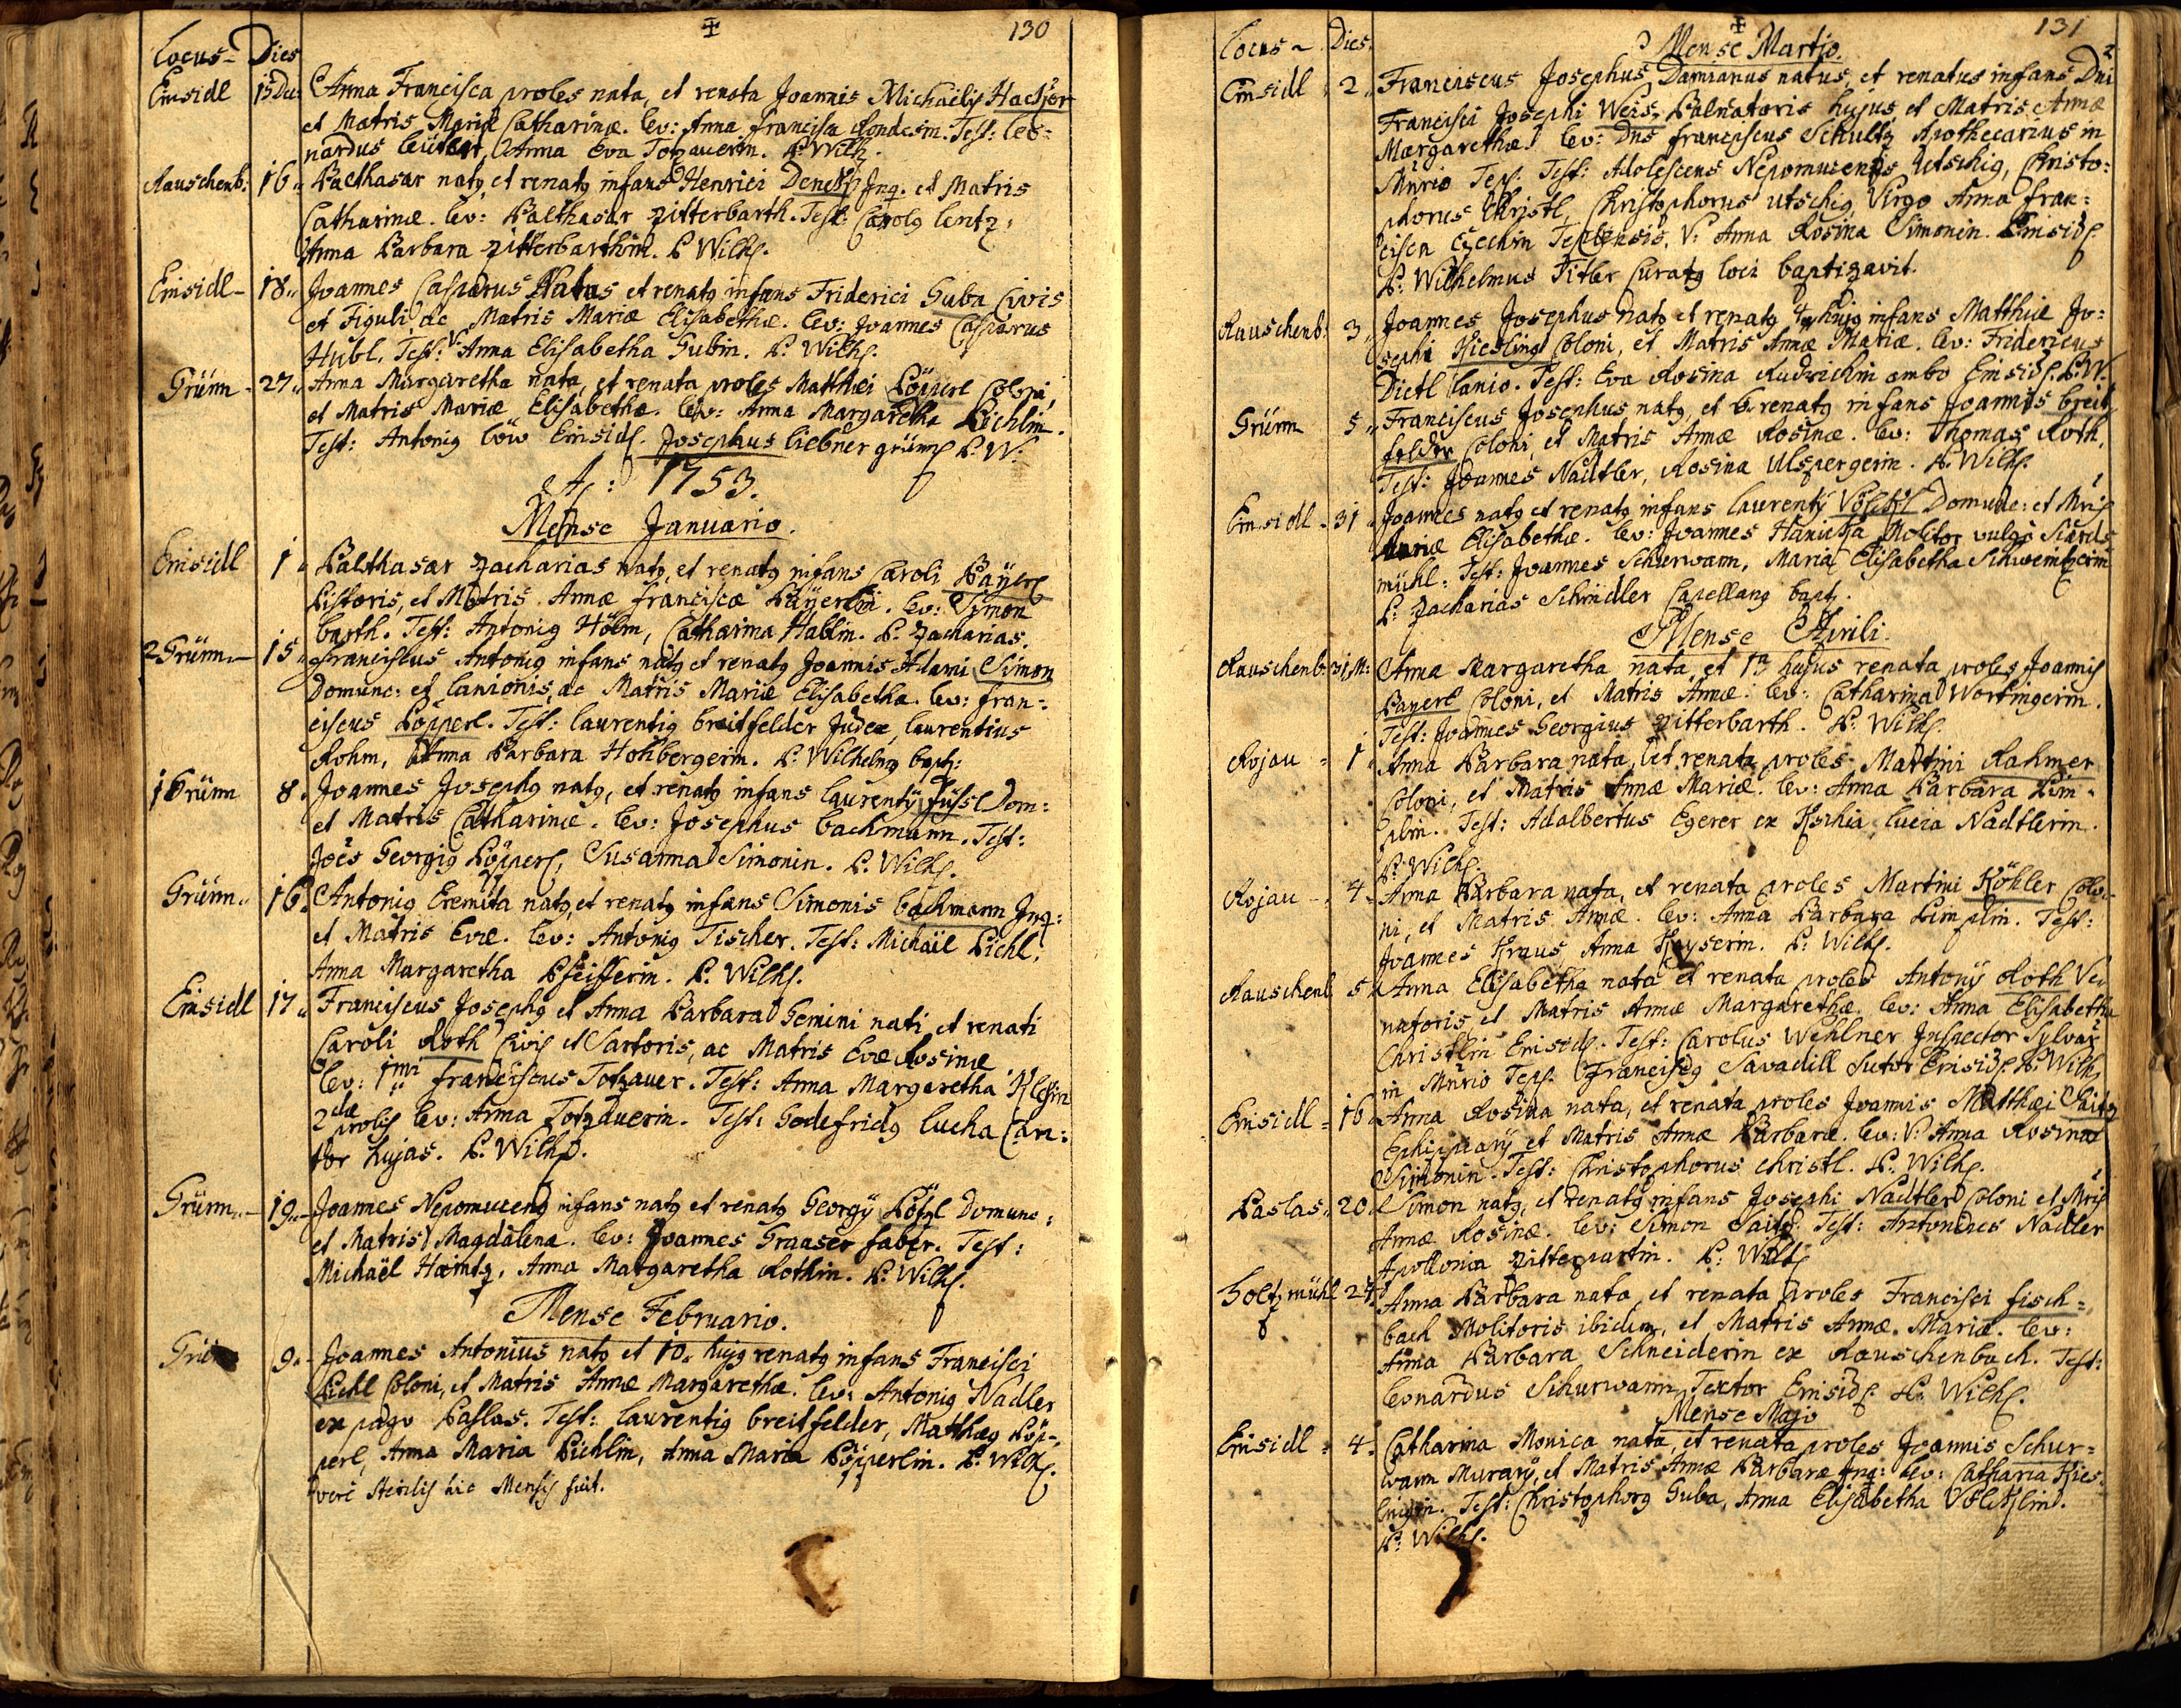 130
Locus Dies
Einsidl 15 Dec: Anna Francisca proles nata, et renata Joannis Michaelis Hacker
et Matris Mariæ Catharinæ. lev: Anna francisca Test: leo=
nardus Anna Eva Totzauerin. P. Wilh.
Rauschenb: 16 Balthasar natq et renatq infans Henrici Inq. et Matris
Catharinæ. lev: Balthasar Zitterbarth. Test: Carolq lentz,
Anna Barbara Zitterbarthin. P. Wilh.
Einsidl 18 Joannes Casparus Natus et renatq infans Friderici Guba Civis
et Figuli, ac Matris Mariæ Elisabethæ. lev: Joannes Casparus
Hubl. Test: V: Anna Elisabetha Gubin. P. Wilh.
Grünn 27 Anna Margaretha nata, et renata proles Matthæi Pöpperl Coloni,
et Matris Mariæ Elisabethæ. lev: Anna Margaretha Pichlin.
Test: Antoniq löw Einsidl. Josephus liebner grünn P. W:
A: 1753.
Mense Januario.
Einsidl 1 Balthasar Zacharias natq, et renatq infans Caroli Bayerl
Pistoris, et Matris Annæ franciscæ Bayerlin. lev: Simon
barth. Test: Antoniq Hölm, Catharina Hablin. P. Zacharias.
2 Grünn 15 Franciscus Antoniq infans natq et renatq Joannis Adami Simon
Domunc: et lanionis, ac Matris Mariæ Elisabetha. lev: fran=
ciscus Pöpperl. Test: laurentiq breitfelder Judex, laurentius
Rohm, Anna Barbara Hohbergerin. P. Wilhelmq bapt:
1 Grünn 8 Joannes Josephq natq, et renatq infans laurentÿ füssl Dom:
et Matris Catharinæ. lev: Josephus bachmann. Test:
Joës Georgiq Pöpperl, Susanna Simonin. P. Wilh.
Grünn 16 Antoniq Eremita natq, et renatq infans Simonis bachmann Inq:
et Matris Evæ. lev: Antoniq Tischer. Test: Michäel Pichl,
Anna Margaretha Pfeifferin. P. Wilh.
Einsidl 17 Franciscus Josephq et Anna Barbara Gemini nati et renati
Caroli Roth Civis et Sartoris, ac Matris Evæ Rosinæ
lev: 1mi franciscus Totzauer. Test: Anna Margaretha
2dæ prolis lev: Anna Totzauerin. Test: Godefridq lucha Can=
tor hujas. P. Wilh.
Grünn 19 Joannes Nepomucenq infans natq et renatq Georgÿ Domunc:
et Matris Magdalena. lev: Joannes Graaser faber. Test:
Michaël Haintz, Anna Margaretha Rothin. P. Wilh.
Mense Februario.
9 Joannes Antonius natq et 10 hujq renatq infans Francisci
Pichl Coloni, et Matris Annæ Margarethæ. lev: Antoniq Nadler
ex pago Paslas. Test: laurentiq breitfelder, Matthæq Pöp=
perl, Anna Maria Pichlin, Anna Maria Pöpperlin. P. Wilh.
veré sterilis hic Mensis fuit.
131
Locus Dies
Mense Martio.
Einsidl 2 Franciscus Josephus Damianus natus, et renatus infans Dni
Francisci Josephi Weis, Balneatoris hujus, et Matris Annæ
Margarethæ. lev: Dns franciscus Schultz Apothecarius in
Mnrio Tepl. Test: Adolescens Nepomucenus Utschig, Christo:
phorus Christl, Christophorus Utschig Virgo Anna fran=
cisca Teplensis, V: Anna Rosina Simonin. Einsidl.
P: Wilhelmus Curatq loci baptizavit.
Rauschenb: 3 Joannes Josephus natq et renatq 4 hujq infans Matthiæ Jo=
sephi Kiesling Coloni, et Matris Annæ Mariæ. lev: Fridericus
Dietl lanio. Test: Eva Rosina ambo Einsidl. P. W.
Grünn 5 Franciscus Josephus natq, et renatq infans Joannis breit
felder Coloni, et Matris Annæ Rosinæ. lev: Thomas Roth.
Test: Joannes Nädtler, Rosina Ulspergerin. P. Wilh.
Einsidl 31 Joannes natq et renatq infans laurentÿ Völckl Domunc: et Mris
Mariæ Elisabethæ. lev: Joannes Molitor vulgò
mühl: Test: Joannes Schurwann, Maria Elisabetha
P: Zacharias Schindler Capellanq bapt.
Mense Aprili.
Rauschenb: 31 M: Anna Margaretha nata, et 1ma hujus renata proles Joannis
Bayerl Coloni, et Matris Annæ. lev: Catharina Wortingerin.
Test: Joannes Georgius Zitterbarth. P. Wilh.
Rojau 1 Anna Barbara nata, et renata proles Martini Rahmer
Coloni, et Matris Annæ Mariæ. lev: Anna Barbara Pim=
plin. Test: Adalbertus Egerer ex lucia Nädtlerin.
P: Wilh.
Rojau 4 Anna Barbara nata, et renata proles Martini Köhler Colo=
ni, et Matris Annæ. lev: Anna Barbara Pimplin. Test:
Joannes Kraus, Anna Kayserin. P: Wilh.
Rauschenb. 5 Anna Elisabetha nata et renata proles Antonÿ Roth Ve=
natoris, et Matris Annæ Margarethæ. lev: Anna Elisabetha
Christlin Einsidl. Test: Carolus Wehlner Inspector Sylvar
in Mnrio Tepl. Franciscq Savadill Sutor Einsidl P. Wilh.
Einsidl 16 Anna Rosina nata, et renata proles Joannis Matthæi Saitz
Ephippiarÿ et Matris Annæ Barbaræ. lev: V: Anna Rosina
Simonin. Test: Christophorus Christl. P. Wilh.
Paslas 20 Simon natq, et renatq infans Josephi Nädtler Coloni et Mris
Annæ Rosinæ. lev: Simon Saitz. Test: Antonius Nadler
Apollonia P: Wilh.
Holtzmühl 27 Anna Barbara nata et renata proles Francisci fisch=
bach Molitoris ibidem, et Matris Annæ. Mariæ. lev:
Anna Barbara Schneiderin ex Rauschenbach. Test:
leonardus Schurwann Textor Einsidl P. Wilh.
Mense Majo
Einsidl 4 Catharina Monica nata, et renata proles Joannis Schur=
wann Murarÿ, et Matris Annæ Barbaræ Inq: lev: Catharia Kies=
lingin. Test: Christophorq Guba, Anna Elisabetha Völcklin.
P: Wilh.